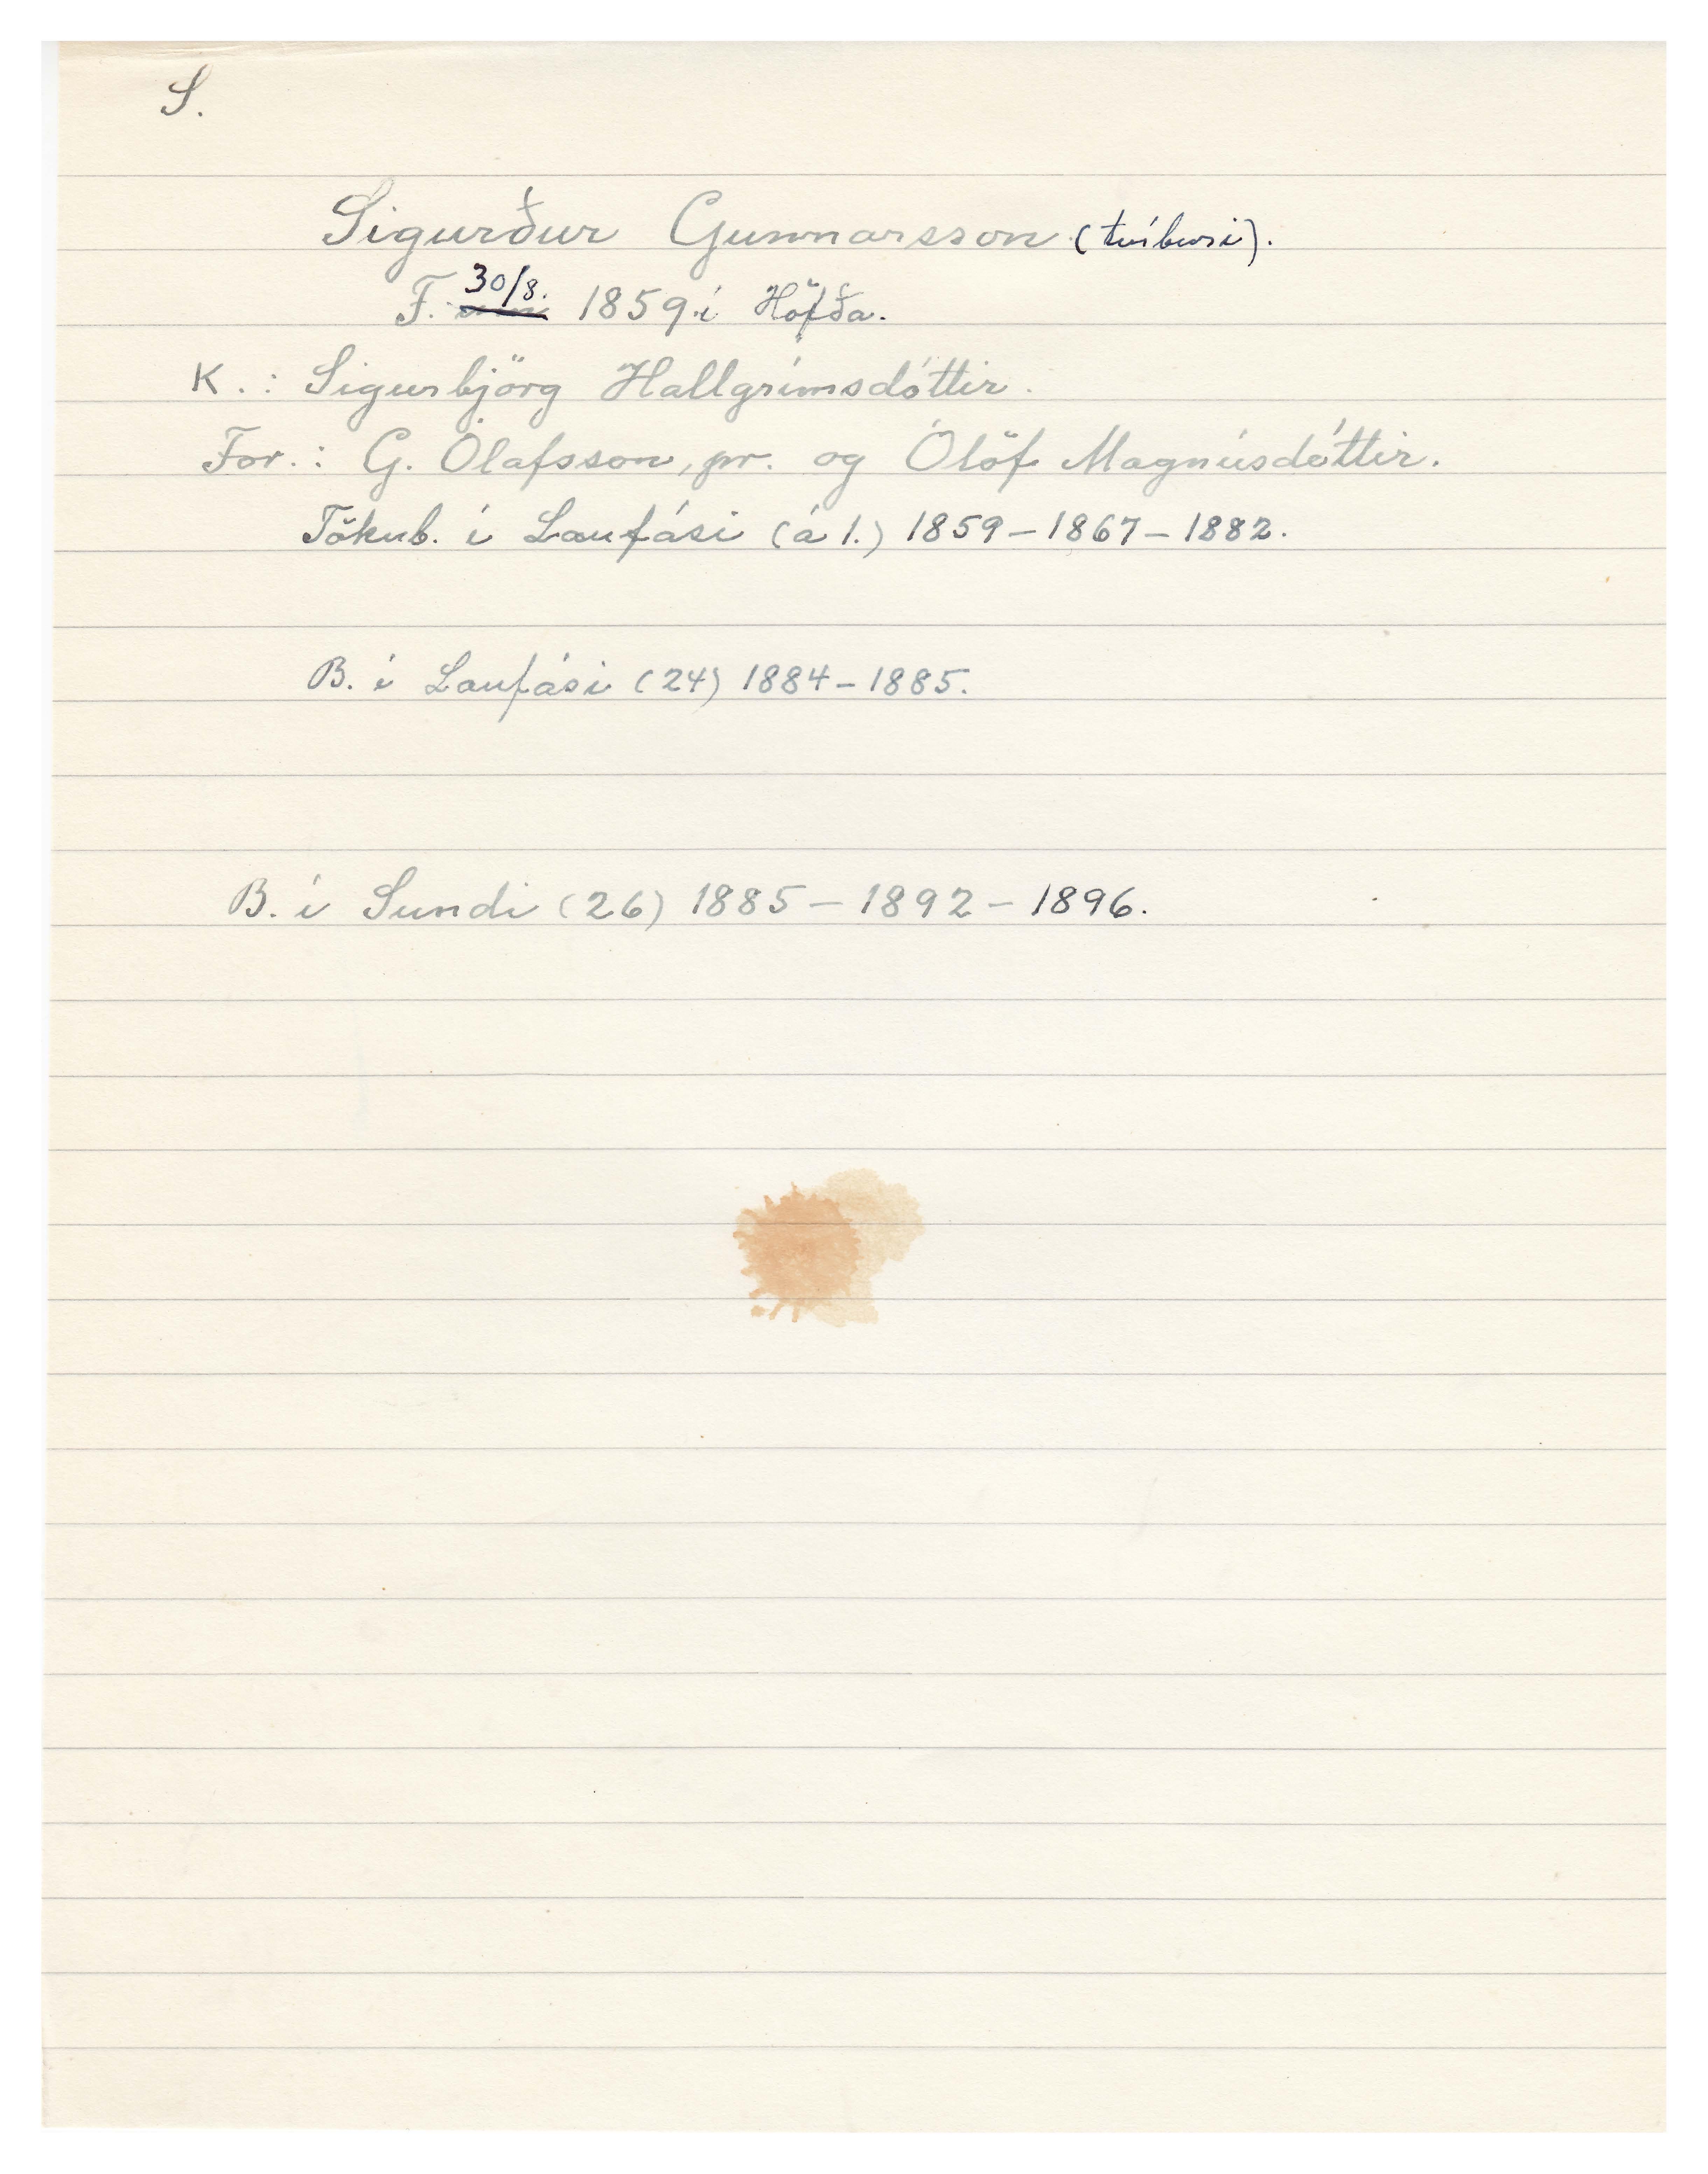 S.
Sigurður Gunnarsson (tvíburi).
F. 30/8. 1859 í Höfða.
K.: Sigurbjörg Hallgrímsdóttir.
For.: G. Ólafsson, pr. og Ólöf Magnúsdóttir.
Tökub. í Laufási (á 1.) 1859-1867-1882.
B. í Laufási (24) 1884-1885.
B. í Sundi (26) 1885-1892-1896.